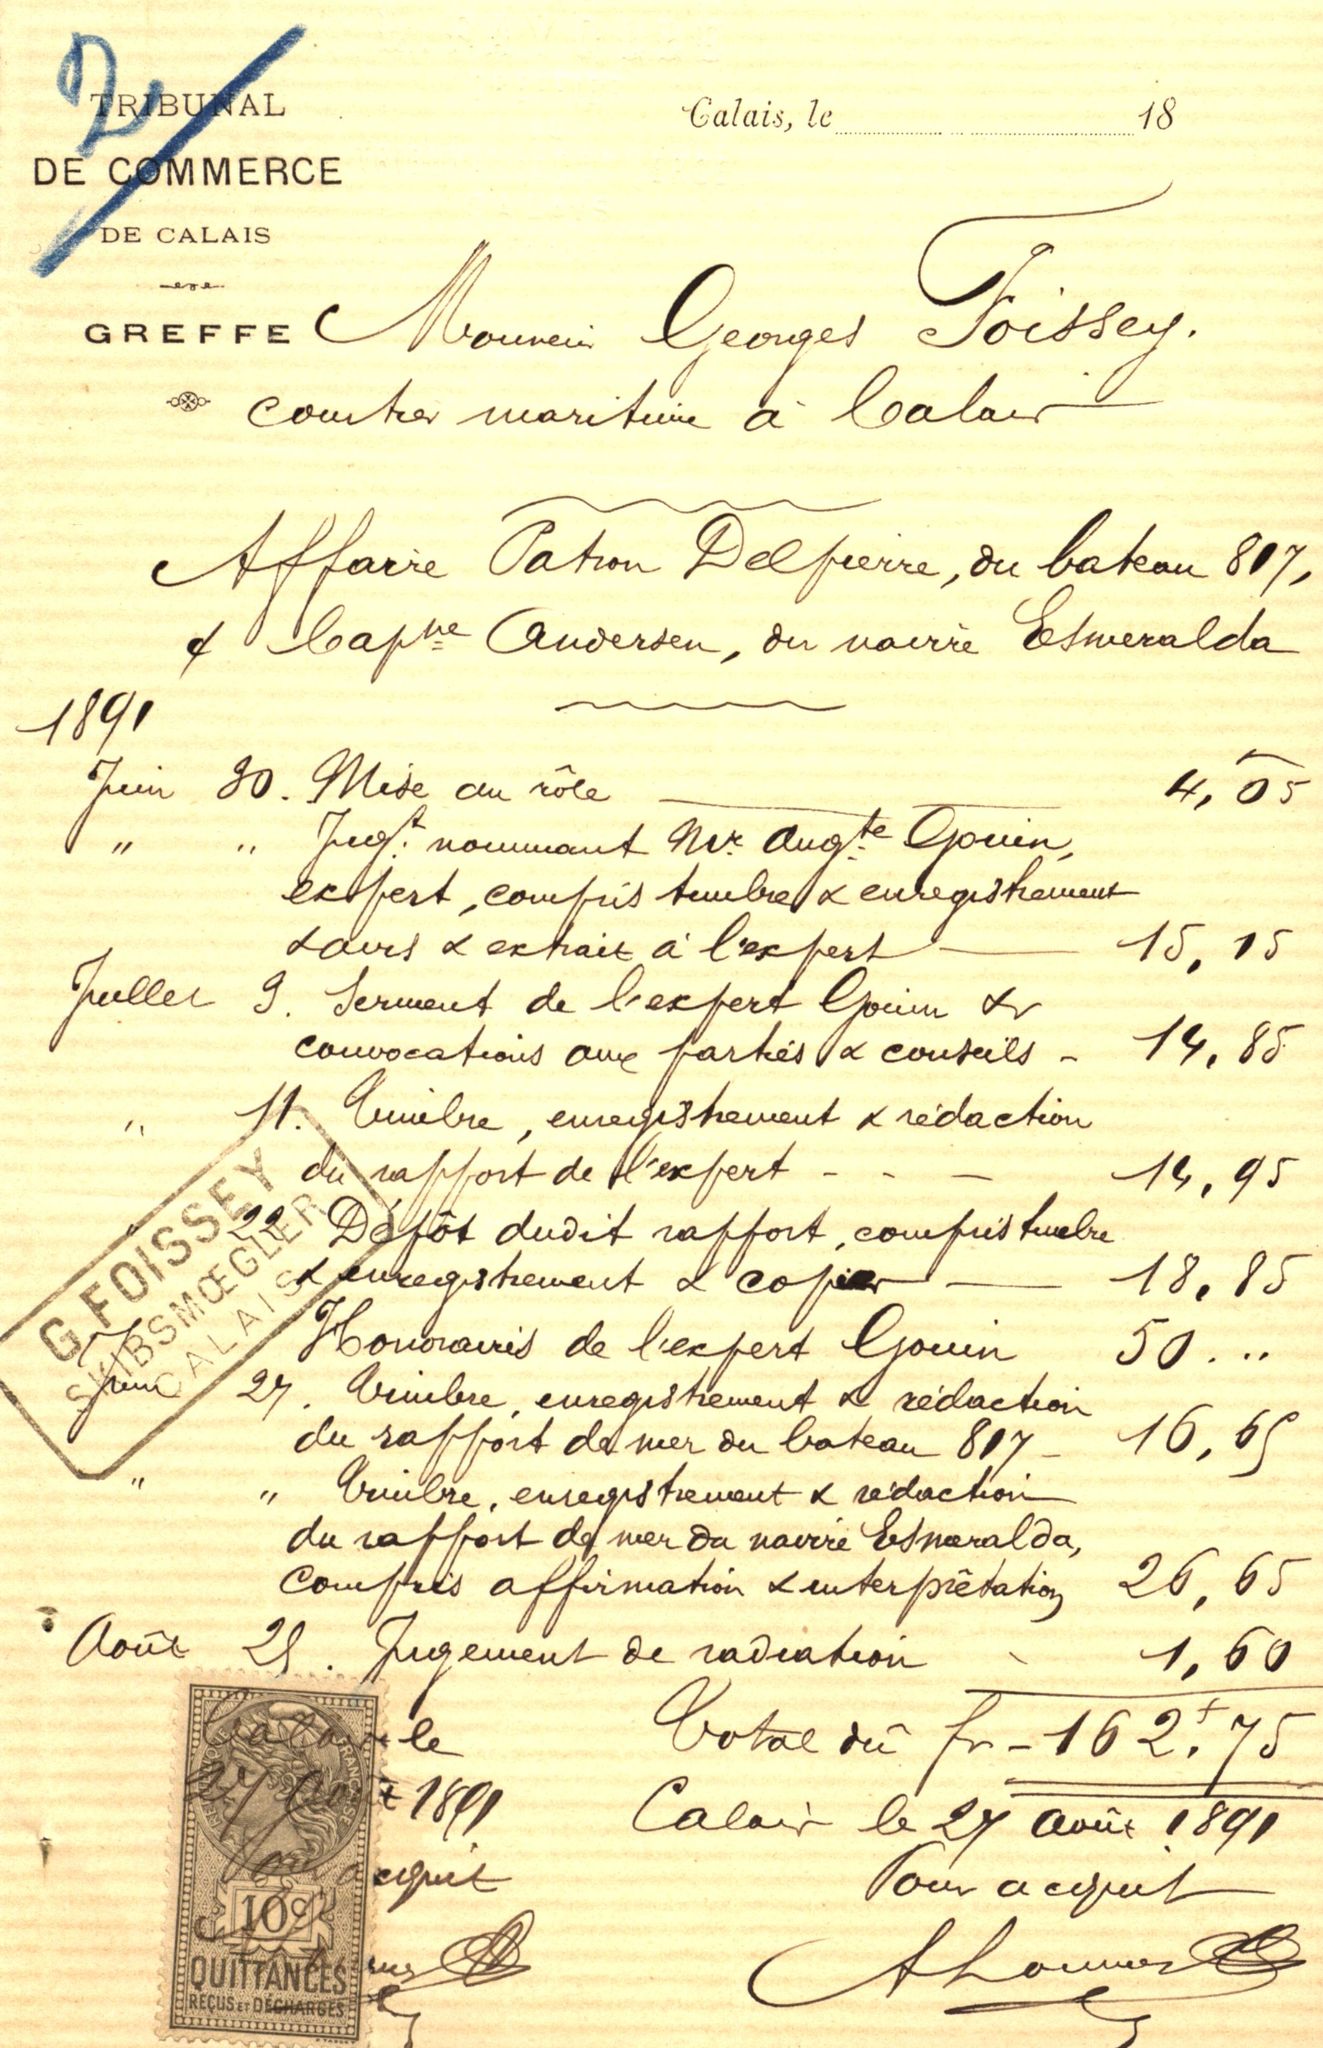 2
TRIBUNAL
DE COMMERCE
DE CALAIS
GREFFE
Calais, le 18
Monsieur Georges Foissey.
courtier maritime à Calais
Affaire Patron Delpierre, du bateau 817,
& Cap^ne Andersen, du navire Esmeralda
1891
Juin 30. Mise au rôle 4,05
" " Jug^t. nommant Mr. Aug^te Gouin,
expert, compris timbre & enregistrement
& avis & extrait à l'expert 15,15
Juillet 9. Serment de l'expert Gouin &
convocations aux parties & conseils - 14,85
" 11. Timbre, enregistrement & rédaction
du rapport de l'expert - - - 14,95
" 22 Dépôt dudit rapport, compris timbre
& enregistrement & copier 18,85
Honoraires de l'expert Gouin 50 . "
Juin 27. Timbre, enregistrement & rédaction
du rapport de mer du bateau 817 - 16,65
" " Timbre, enregistrement & rédaction
du rapport de mer du navire Esmeralda,
compris affirmation & interprêtation 26,65
Août 25. Jugement de radiation - 1,60
Total dû fr - 162,75
Calais le 27 Août 1891
Pour acquit
Calais le
27 Août 1891
Pour acquit
G. FOISSEY
SKIBSMŒGLER
CALAIS
REPUBLIQUE FRANÇAISE
10c
QUITTANCES
REÇUS ET DÉCHARGES